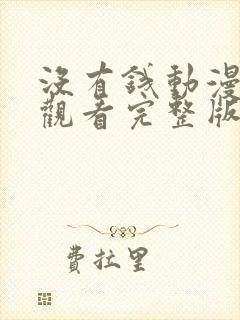 沒有錢動漫
觀看完整版
費拉里